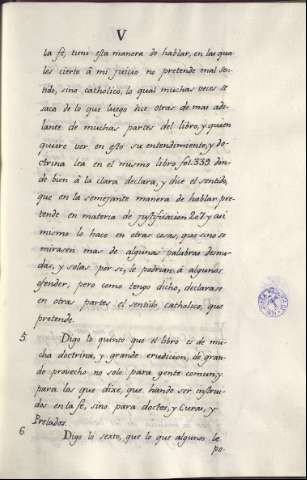 V
la fè, tuvi esta manera de hablar, en las qua
les cierto â mi juicio no pretende mal sen-
tido, sino catholico, lo qual muchas veces se
saca de lo que luego dice otras de mas ade-
lante de muchas partes del libro, y quien
quiere ver en esto su entendimiento, y do-
ctrina lea en el mismo libro fol. 339. don-
de bien â la clara declara, y dice el sentido,
que en la semejante manera de hablar pre-
tende en materia de justificacion 207 y assi
mismo lo hace en otras cosas, que sino se
mirasen mas de algunas palabras desnu-
das, y solas por si, le podrian, â algunos
ofender, pero como tengo dicho, declarase
en otras partes el sentido, catholico, que
pretende.
5 Digo lo quinto que el libro es de mu-
cha doctrina, y grande erudicion, de gran-
de provecho no solo para gente comun, y
para los que dixe, que hande ser instrui-
dos en la fè, sino para doctos, y Curas, y
Prelados.
6 Digo lo sexto, que lo que algunos le
po-